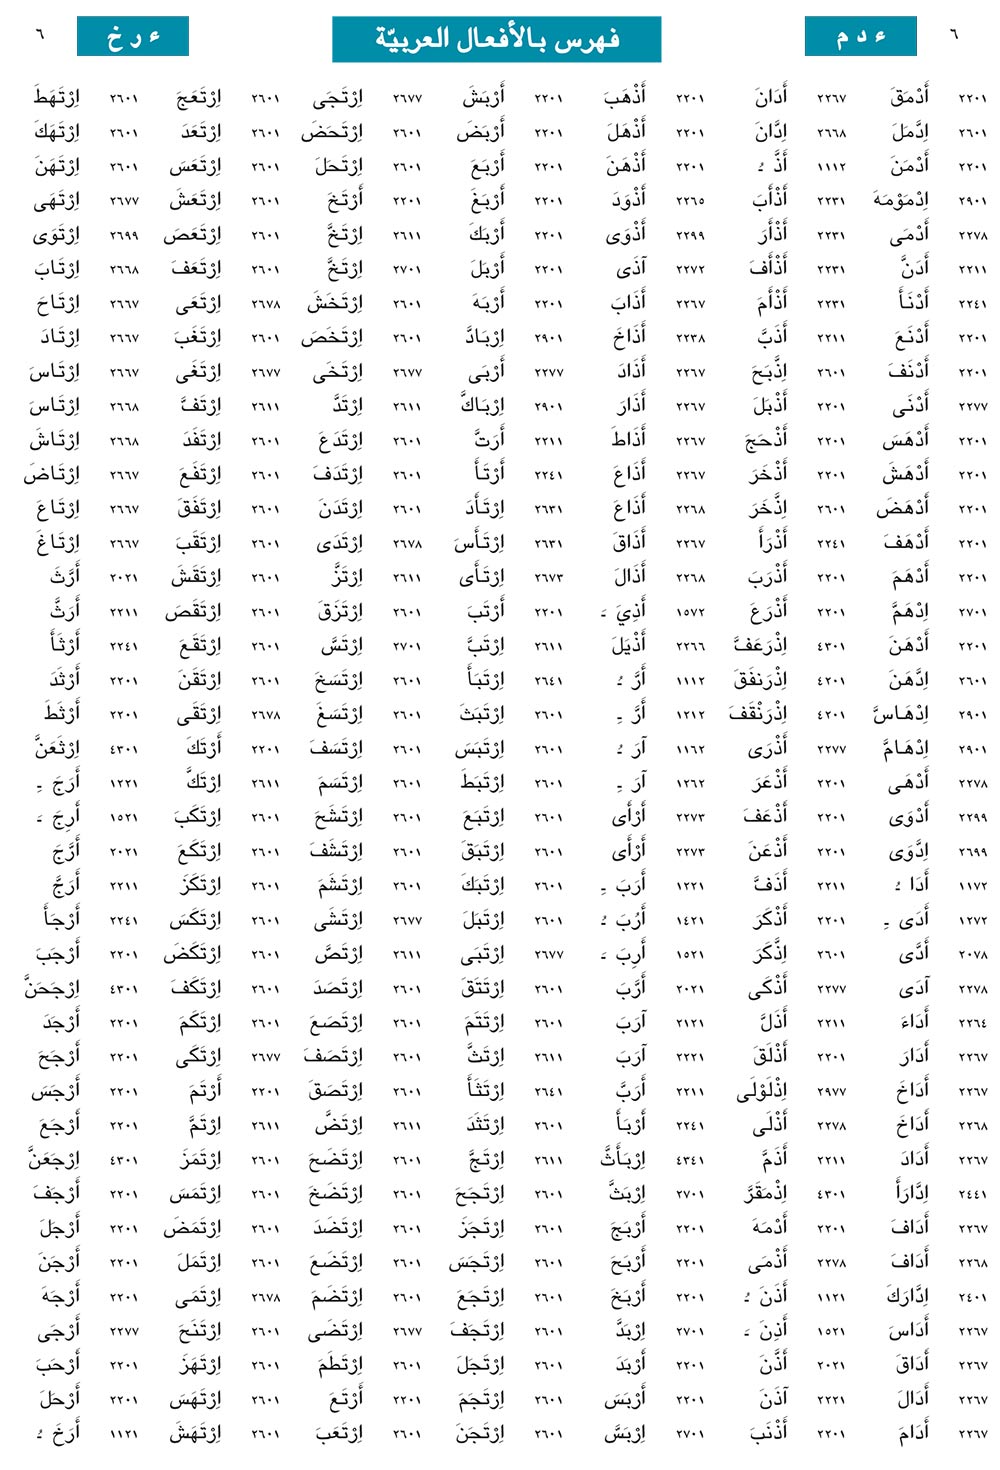 ٦ ء د م فهرس بالأفعال العربيّة ء ر خ ٦
٢٢٠١ أَدْمَقَ ٢٢٦٧ أَدَانَ ٢٢٠١ أَذْهَبَ ٢٢٠١ أَرْبَشَ ٢٦٧٧ اِرْتَجَى ٢٦٠١ اِرْتَعَجَ ٢٦٠١ اِرْتَهَطَ
٢٦٠١ اِدَّمَلَ ٢٦٦٨ اِدَّانَ ٢٢٠١ أَذْهَلَ ٢٢٠١ أَرْبَضَ ٢٦٠١ اِرْتَحَضَ ٢٦٠١ اِرْتَعَدَ ٢٦٠١ اِرْتَهَكَ
٢٢٠١ أَدْمَنَ ١١١٢ أَذَّ ـُ ٢٢٠١ أَذْهَنَ ٢٢٠١ أَرْبَعَ ٢٦٠١ اِرْتَحَلَ ٢٦٠١ اِرْتَعَسَ ٢٦٠١ اِرْتَهَنَ
٢٩٠١ اِدْمَوْمَهَ ٢٢٣١ أَذْأَبَ ٢٢٦٥ أَذْوَدَ ٢٢٠١ أَرْبَغَ ٢٢٠١ أَرْتَخَ ٢٦٠١ اِرْتَعَشَ ٢٦٧٧ اِرْتَهَى
٢٢٧٨ أَدْمَى ٢٢٣١ أَذْأَرَ ٢٢٩٩ أَذْوَى ٢٢٠١ أَرْبَكَ ٢٦١١ اِرْتَخَّ ٢٦٠١ اِرْتَعَصَ ٢٦٩٩ اِرْتَوَى
٢٢١١ أَدَنَّ ٢٢٣١ أَذْأَفَ ٢٢٧٢ آذَى ٢٢٠١ أَرْبَلَ ٢٧٠١ اِرْتَخَّ ٢٦٠١ اِرْتَعَفَ ٢٦٦٨ اِرْتَابَ
٢٢٤١ أَدْنَأَ ٢٢٣١ أَذْأَمَ ٢٢٦٧ أَذَابَ ٢٢٠١ أَرْبَهَ ٢٦٠١ اِرْتَخَشَ ٢٦٧٨ اِرْتَعَى ٢٦٦٧ اِرْتَاحَ
٢٢٠١ أَدْنَعَ ٢٢١١ أَذَبَّ ٢٢٣٨ أَذَاخَ ٢٩٠١ اِرْبَادَّ ٢٦٠١ اِرْتَخَصَ ٢٦٠١ اِرْتَغَبَ ٢٦٦٧ اِرْتَادَ
٢٢٠١ أَدْنَفَ ٢٦٠١ اِذَّبَحَ ٢٢٦٧ أَذَادَ ٢٢٧٧ أَرْبَى ٢٦٧٧ اِرْتَخَى ٢٦٧٧ اِرْتَغَى ٢٦٦٧ اِرْتَاسَ
٢٢٧٧ أَدْنَى ٢٢٠١ أَذْبَلَ ٢٢٦٧ أَذَارَ ٢٩٠١ اِرْبَاكَّ ٢٦١١ اِرْتَدَّ ٢٦١١ اِرْتَفَّ ٢٦٦٨ اِرْتَاسَ
٢٢٠١ أَدْهَسَ ٢٢٠١ أَذْحَجَ ٢٢٦٧ أَذَاطَ ٢٢١١ أَرَتَّ ٢٦٠١ اِرْتَدَعَ ٢٦٠١ اِرْتَفَدَ ٢٦٦٨ اِرْتَاشَ
٢٢٠١ أَدْهَشَ ٢٢٠١ أَذْخَرَ ٢٢٦٧ أَذَاعَ ٢٢٤١ أَرْتَأَ ٢٦٠١ اِرْتَدَفَ ٢٦٠١ اِرْتَفَعَ ٢٦٦٧ اِرْتَاضَ
٢٢٠١ أَدْهَضَ ٢٦٠١ اِذَّخَرَ ٢٢٦٨ أَذَاعَ ٢٦٣١ اِرْتَأَدَ ٢٦٠١ اِرْتَدَنَ ٢٦٠١ اِرْتَفَقَ ٢٦٦٧ اِرْتَاعَ
٢٢٠١ أَدْهَفَ ٢٢٤١ أَذْرَأَ ٢٢٦٧ أَذَاقَ ٢٦٣١ اِرْتَأَسَ ٢٦٧٨ اِرْتَدَى ٢٦٠١ اِرْتَقَبَ ٢٦٦٧ اِرْتَاغَ
٢٢٠١ أَدْهَمَ ٢٢٠١ أَذْرَبَ ٢٢٦٨ أَذَالَ ٢٦٧٣ اِرْتَأَى ٢٦١١ اِرْتَزَّ ٢٦٠١ اِرْتَقَشَ ٢٠٢١ أَرَّثَ
٢٧٠١ اِدْهَمَّ ٢٢٠١ أَذْرَعَ ١٥٧٢ أَذِيَ ـَ ٢٢٠١ أَرْتَبَ ٢٦٠١ اِرْتَزَقَ ٢٦٠١ اِرْتَقَصَ ٢٢١١ أَرَثَّ
٢٢٠١ أَدْهَنَ ٤٣٠١ اِذْرَعَفَّ ٢٢٦٦ أَذْيَلَ ٢٦١١ اِرْتَبَّ ٢٧٠١ اِرْتَسَّ ٢٦٠١ اِرْتَقَعَ ٢٢٤١ أَرْثَأَ
٢٦٠١ اِدَّهَنَ ٤٢٠١ اِذْرَنفَقَ ١١١٢ أَرَّ ـُ ٢٦٤١ اِرْتَبَأَ ٢٦٠١ اِرْتَسَخَ ٢٦٠١ اِرْتَقَنَ ٢٢٠١ أَرْثَدَ
٢٩٠١ اِدْهَاسَّ ٤٢٠١ اِذْرَنْقَفَ ١٢١٢ أَرَّ ـِ ٢٦٠١ اِرْتَبَثَ ٢٦٠١ اِرْتَسَغَ ٢٦٧٨ اِرْتَقَى ٢٢٠١ أَرْثَطَ
٢٩٠١ اِدْهَامَّ ٢٢٧٧ أَذْرَى ١١٦٢ آرَ ـُ ٢٦٠١ اِرْتَبَسَ ٢٦٠١ اِرْتَسَفَ ٢٢٠١ أَرْتَكَ ٤٣٠١ اِرْثَعَنَّ
٢٢٧٨ أَدْهَى ٢٢٠١ أَذْعَرَ ١٢٦٢ آرَ ـِ ٢٦٠١ اِرْتَبَطَ ٢٦٠١ اِرْتَسَمَ ٢٦١١ اِرْتَكَّ ١٢٢١ أَرَجَ ـِ
٢٢٩٩ أَدْوَى ٢٢٠١ أَذْعَفَ ٢٢٧٣ أَرْأَى ٢٦٠١ اِرْتَبَعَ ٢٦٠١ اِرْتَشَحَ ٢٦٠١ اِرْتَكَبَ ١٥٢١ أَرِجَ ـَ
٢٦٩٩ اِدَّوَى ٢٢٠١ أَذْعَنَ ٢٢٧٣ أَرْأَى ٢٦٠١ اِرْتَبَقَ ٢٦٠١ اِرْتَشَفَ ٢٦٠١ اِرْتَكَعَ ٢٠٢١ أَرَّجَ
١١٧٢ أَدَا ـُ ٢٢١١ أَذَفَّ ١٢٢١ أَرَبَ ـِ ٢٦٠١ اِرْتَبَكَ ٢٦٠١ اِرْتَشَمَ ٢٦٠١ اِرْتَكَزَ ٢٢١١ أَرَجَّ
١٢٧٢ أَدَى ـِ ٢٢٠١ أَذْكَرَ ١٤٢١ أَرُبَ ـُ ٢٦٠١ اِرْتَبَلَ ٢٦٧٧ اِرْتَشَى ٢٦٠١ اِرْتَكَسَ ٢٢٤١ أَرْجَأَ
٢٠٧٨ أَدَّى ٢٦٠١ اِذَّكَرَ ١٥٢١ أَرِبَ ـَ ٢٦٧٧ اِرْتَبَى ٢٦١١ اِرْتَصَّ ٢٦٠١ اِرْتَكَضَ ٢٢٠١ أَرْجَبَ
٢٢٧٨ آدَى ٢٢٧٧ أَذْكَى ٢٠٢١ أَرَّبَ ٢٦٠١ اِرْتَتَقَ ٢٦٠١ اِرْتَصَدَ ٢٦٠١ اِرْتَكَفَ ٤٣٠١ اِرْجَحَنَّ
٢٢٦٤ أَدَاءَ ٢٢١١ أَذَلَّ ٢١٢١ آرَبَ ٢٦٠١ اِرْتَتَمَ ٢٦٠١ اِرْتَصَعَ ٢٦٠١ اِرْتَكَمَ ٢٢٠١ أَرْجَدَ
٢٢٦٧ أَدَارَ ٢٢٠١ أَذْلَقَ ٢٢٢١ آرَبَ ٢٦١١ اِرْتَثَّ ٢٦٠١ اِرْتَصَفَ ٢٦٧٧ اِرْتَكَى ٢٢٠١ أَرْجَحَ
٢٢٦٧ أَدَاخَ ٢٩٧٧ اِذْلَوْلَى ٢٢١١ أَرَبَّ ٢٦٤١ اِرْتَثَأَ ٢٦٠١ اِرْتَصَقَ ٢٢٠١ أَرْتَمَ ٢٢٠١ أَرْجَسَ
٢٢٦٨ أَدَاخَ ٢٢٧٨ أَذْلَى ٢٢٤١ أَرْبَأَ ٢٦٠١ اِرْتَثَدَ ٢٦١١ اِرْتَضَّ ٢٦١١ اِرْتَمَّ ٢٢٠١ أَرْجَعَ
٢٢٦٧ أَدَادَ ٢٢١١ أَذَمَّ ٤٣٤١ اِرْبَأَثَّ ٢٦١١ اِرْتَجَّ ٢٦٠١ اِرْتَضَحَ ٢٦٠١ اِرْتَمَزَ ٤٣٠١ اِرْجَعَنَّ
٢٤٤١ اِدَّارَأَ ٤٣٠١ اِذْمَقَرَّ ٢٧٠١ اِرْبَثَّ ٢٦٠١ اِرْتَجَحَ ٢٦٠١ اِرْتَضَخَ ٢٦٠١ اِرْتَمَسَ ٢٢٠١ أَرْجَفَ
٢٢٦٧ أَدَافَ ٢٢٠١ أَذْمَهَ ٢٢٠١ أَرْبَجَ ٢٦٠١ اِرْتَجَزَ ٢٦٠١ اِرْتَضَدَ ٢٦٠١ اِرْتَمَضَ ٢٢٠١ أَرْجَلَ
٢٢٦٨ أَدَافَ ٢٢٧٨ أَذْمَى ٢٢٠١ أَرْبَحَ ٢٦٠١ اِرْتَجَسَ ٢٦٠١ اِرْتَضَعَ ٢٦٠١ اِرْتَمَلَ ٢٢٠١ أَرْجَنَ
٢٤٠١ اِدَّارَكَ ١١٢١ أَذَنَ ـُ ٢٢٠١ أَرْبَخَ ٢٦٠١ اِرْتَجَعَ ٢٦٠١ اِرْتَضَمَ ٢٦٧٨ اِرْتَمَى ٢٢٠١ أَرْجَهَ
٢٢٦٧ أَدَاسَ ١٥٢١ أَذِنَ ـَ ٢٧٠١ اِرْبَدَّ ٢٦٠١ اِرْتَجَفَ ٢٦٧٧ اِرْتَضَى ٢٦٠١ اِرْتَنَحَ ٢٢٧٧ أَرْجَى
٢٢٦٧ أَدَاقَ ٢٠٢١ أَذَّنَ ٢٢٠١ أَرْبَدَ ٢٦٠١ اِرْتَجَلَ ٢٦٠١ اِرْتَطَمَ ٢٦٠١ اِرْتَهَزَ ٢٢٠١ أَرْحَبَ
٢٢٦٧ أَدَالَ ٢٢٢١ آذَنَ ٢٢٠١ أَرْبَسَ ٢٦٠١ اِرْتَجَمَ ٢٢٠١ أَرْتَعَ ٢٦٠١ اِرْتَهَسَ ٢٢٠١ أَرْحَلَ
٢٢٦٧ أَدَامَ ٢٢٠١ أَذْنَبَ ٢٧٠١ اِرْبَسَّ ٢٦٠١ اِرْتَجَنَ ٢٦٠١ اِرْتَعَبَ ٢٦٠١ اِرْتَهَشَ ١١٢١ أَرَخَ ـُ